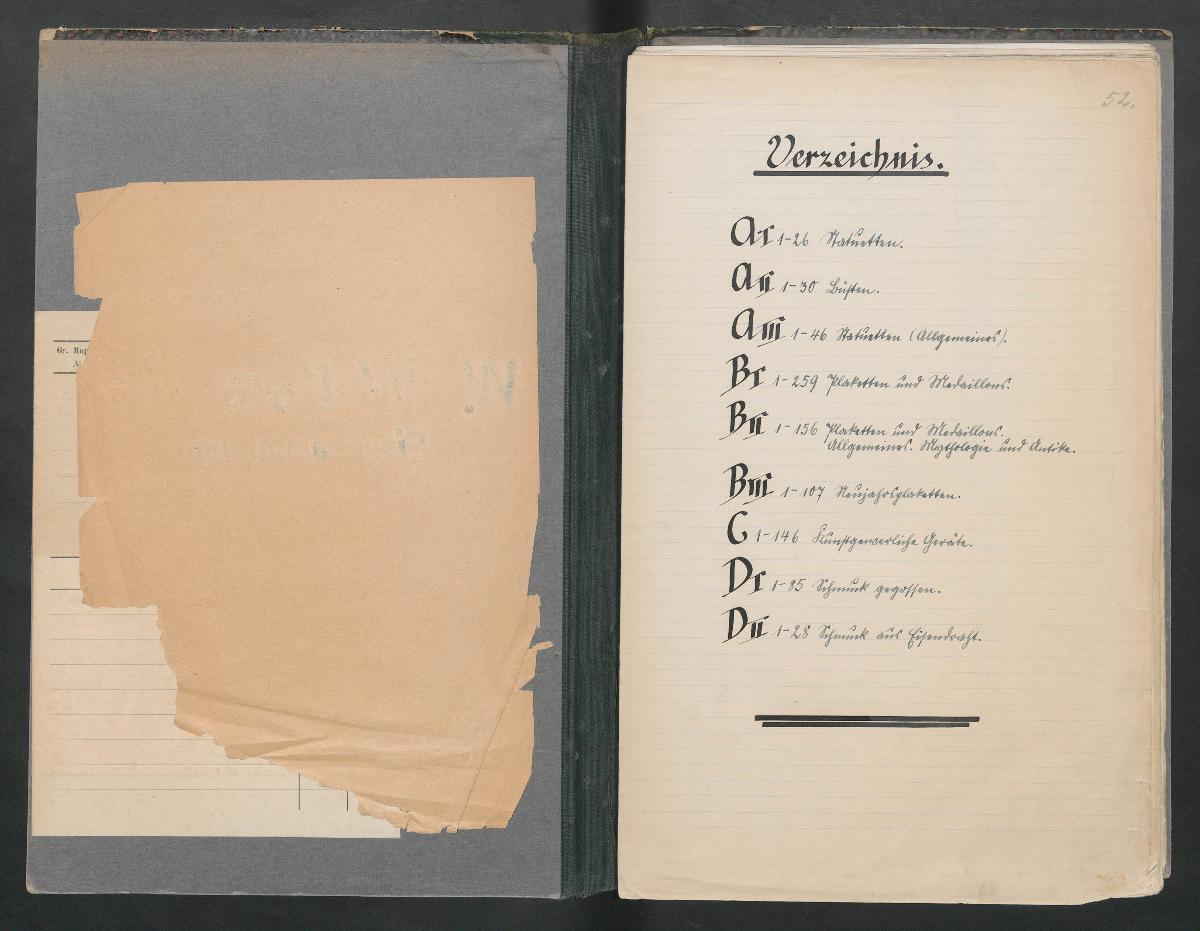 Gr. Rup
№
52.
Verzeichnis.
A I 1-26 Statuetten.
A II 1-30 Büsten.
A III 1-46 Statuetten (Allgemeines).
B I 1-259 Plaketten und Medaillons.
B II 1-156 Plaketten und Medaillons.
Allgemeines. Mythologie und Antike.
B III 1-107 Neujahrsplaketten.
C 1-146 Kunstgewerliche Geräte.
D I 1-85 Schmuck gegossen.
D II 1-28 Schmuck aus Eisendraht.